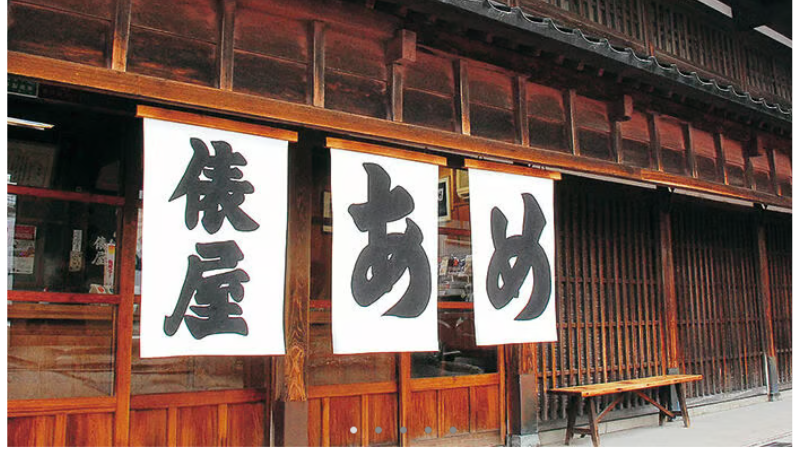 俵屋
あ
め